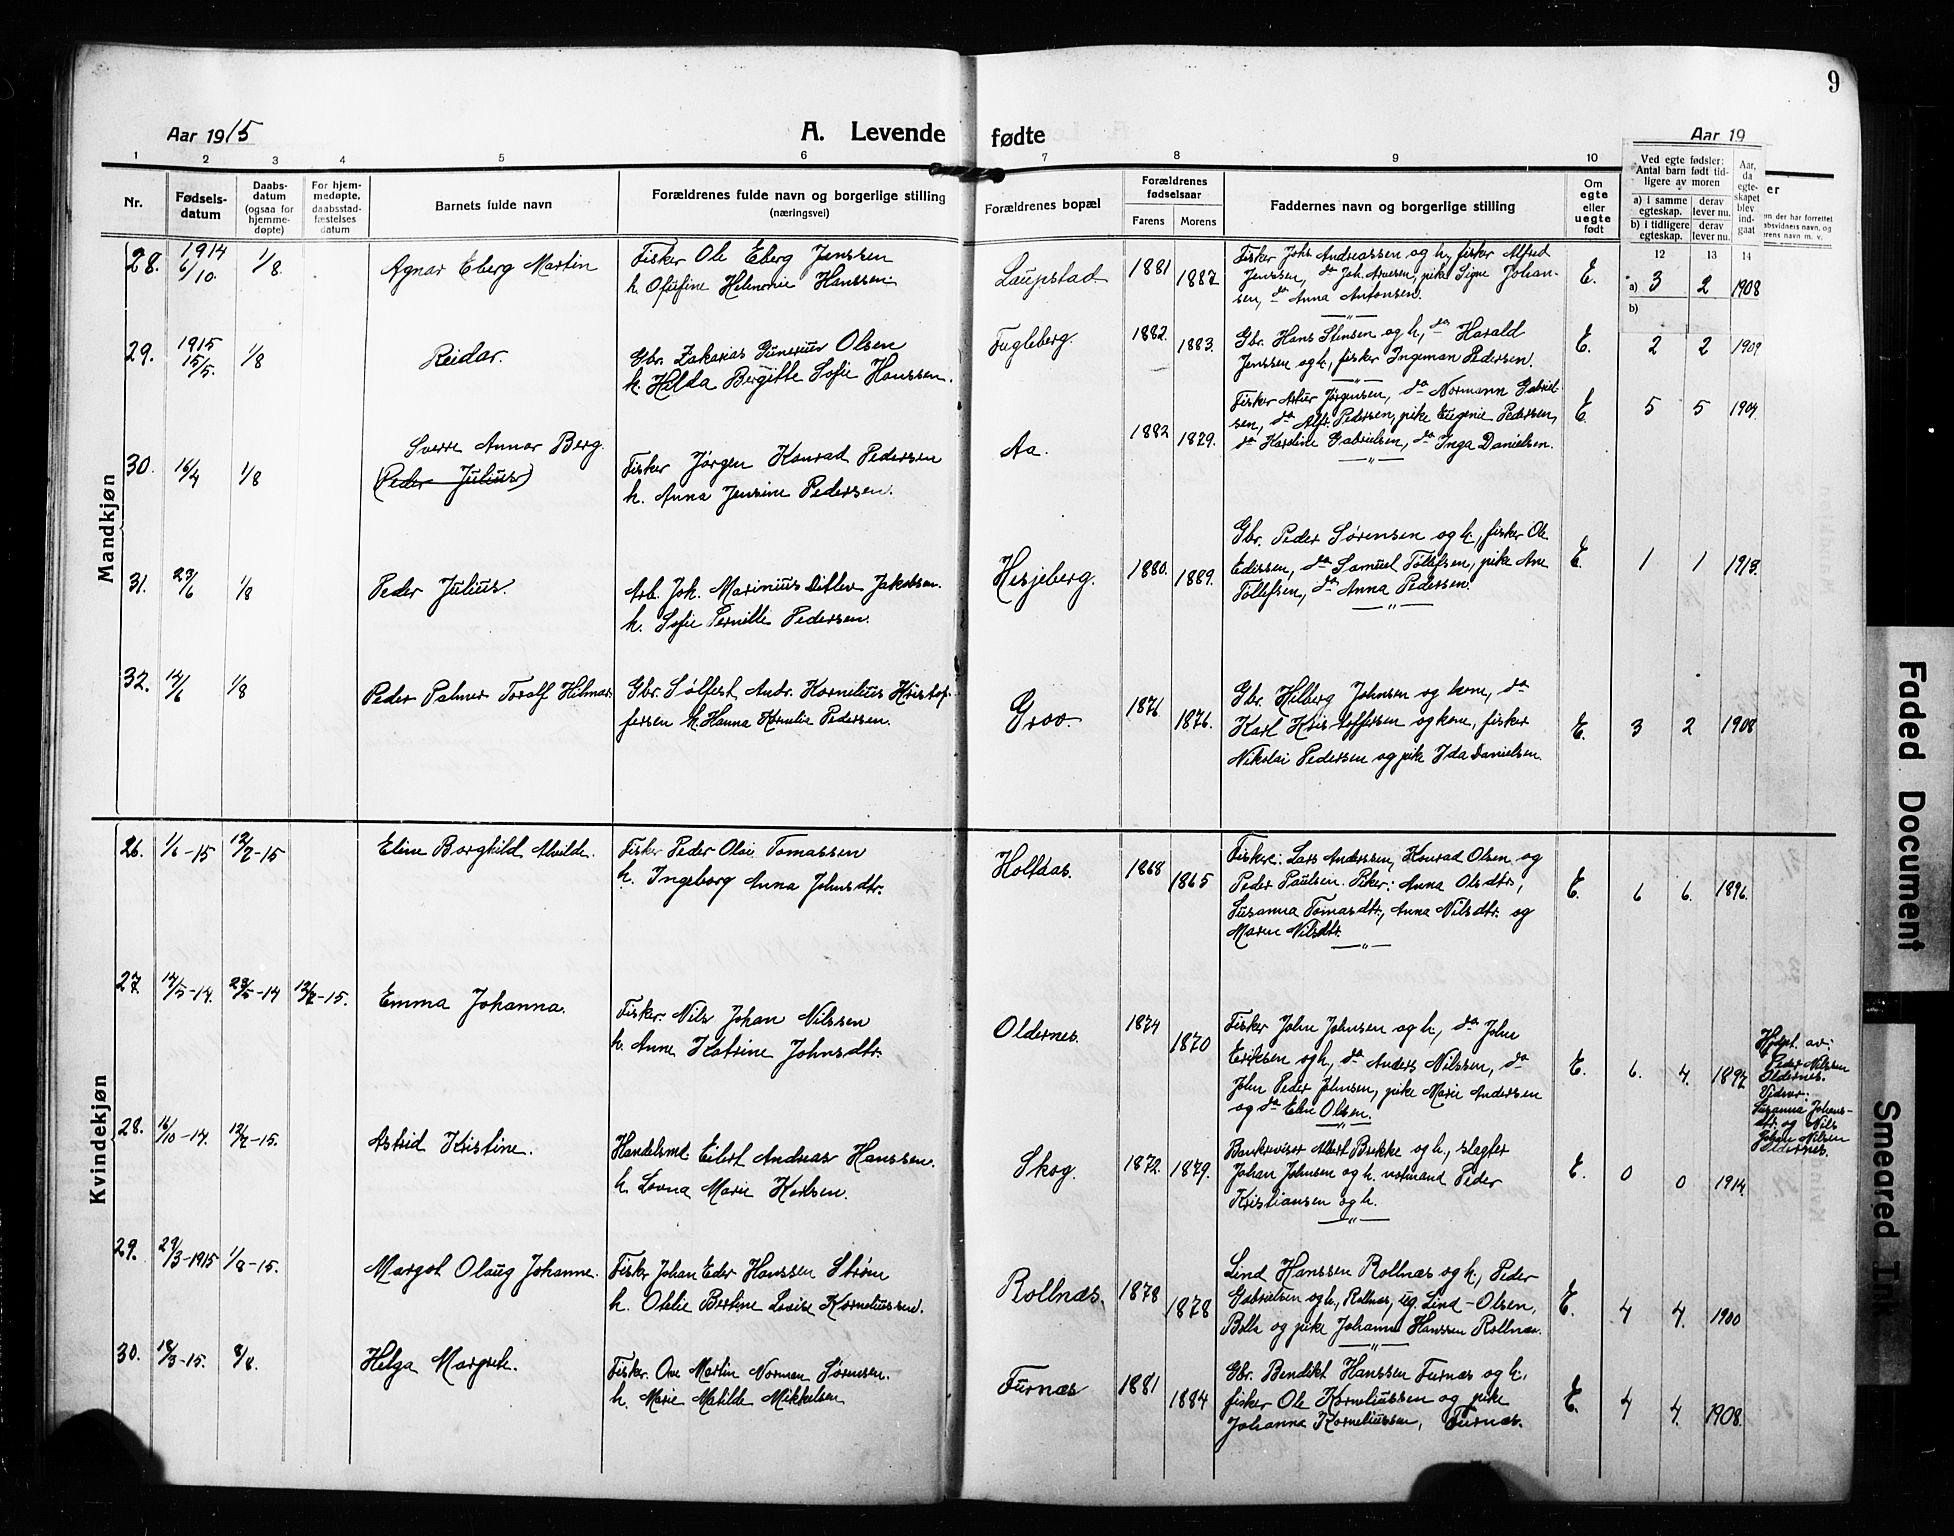 9
Aar 1915
A. Levende
fødte
Aar 19
1 2 3 4 5 6 7 8 9 10
Nr.
Fødsels-
datum
Daabs-
datum
(ogsaa for
hjemme-
døpte)
For hjem-
medøpte,
daabsstad-
fæstelses
datum
Barnets fulde navn
Forældrenes fulde navn og borgerlige stilling
(næringsvei)
Forældrenes bopæl
Forældrenes
fødselsaar
Farens Morens
Faddernes navn og borgerlige stilling
Om
egte
eller
uegte
født
Ved egte fødsler:
Antal barn født tid-
ligere av moren
a) i samme
egteskap.
derav
lever nu.
b) i tidligere
egteskap.
derav
lever nu.
Aar,
da
egte-
skapet
blev
ind-
gaat
12 13 14
er
en der har forrettet
absvidneis navn, og
erens navn m. v.
Mandkjøn
28. 1914
6/10. 1/8. Agnar Eberg Martin
Fisker Ole Eberg Jenssen
h. Helmine Hanssen
Laupstad 1881 1887
Fisker Johs Andreassen og h, fisker Alfred
Jenssen, do Joh. pike Signe Johan-
sen, do Anna Antonsen.
E. a) 3 2 1908
b)
29. 1915
15/5. 1/8 Reidar.
Gbr. Zakarias Gunerius Olsen
h. Hilda Bergitte Sofie Hanssen.
Fugleberg. 1882. 1883.
Gbr. Hans Stensen og h, do Harald
Jenssen og h, fisker Ingeman Pedersen.
E. 2 2 1909
30. 16/4 1/8
Sverre Annar Berg.
(Peder Julius)
Fisker Jørgen Konrad Pedersen
h. Anna Jensine Pedersen.
Aa. 1882 1879.
Fisker Artur Jørgensen, do Normann Gabriel-
sen, do Alfr. Pedersen, pike Eugenie Pedersen,
do Hardine Gabrielsen, do Inga Danielsen.
E 5 5 1904
31. 29/6 1/8 Peder Julius.
Arb. Joh. Marinius Ditlev Jakobsen.
h. Sofie Pernille Pedersen.
Hesjeberg. 1880. 1889.
Gbr. Peder Sørensen og h., fisker Ole
Edissen, do Samuel Tollefsen, pike Ane
Tollefsen, do Anna Pedersen.
E. 1 1 1913.
32. 14/6 1/8 Peder Palmer Toralf Hilmar.
Gbr. Sølfest Andr. Kornelius Kristof-
fersen h. Hanna Kornelia Pedersen.
Grov. 1876 1876.
Gbr. Hilberg Johnsen og kone, do
Karl Kristoffersen og kone, fisker
Nikolai Pedersen og pike Ida Danielsen
E. 3 2 1908
Kvindekjøn
26. 1/6-15 12/7-15 Eline Borghild Alvilde.
Fisker Peder Olai Tomassen
h. Ingeborg Anna Johnsdtr.
Holtdas. 1868 1865
Fiskere: Lars Anderssen, Konrad Olsen og
Peder Paulsen. Piker: Anna Olsdtr,
Susanna Tomasdtr., Anna Nilsdtr. og
Maren Nilsdtr.
E. 6 6. 1896.
27. 17/5-14. 29/5-14 12/7-15. Emma Johanna.
Fisker. Nils Johan Nilssen
h. Anne Katrine Johnsdtr.
Oldernes. 1874 1870
Fisker John Johnsen og h., do John
Eriksen og h, do Anders Nilssen, do
John Peder Johnsen, pike Marie Andersen
og do Elen Olsen.
E. 6. 4. 1897.
Hjdpt. av:
Peder Nilssen
Oldernes.
Vidner:
Susanna Johans-
dtr. og Nils
Johan Nilsen
Oldernes.
28. 16/10-14. 12/7-15. Astrid Kristine.
Handelsmt. Eilert Andreas Hanssen.
h. Lovna Marie Karlsen.
Skog. 1872. 1879.
Bankreviser Albert Brekke og h., slagter
Johan Johnsen og h. notmand Peder
Kristiansen og h.
E. 0 0 1914.
29. 29/3-1915 1/8-15. Margot Olaug Johanne.
Fisker Johan Eder Hanssen Strøm
h. Otelie Bertine Lovise Korneliussen.
Rollnæs. 1878 1878
Lind Hanssen Rollnæs og h., Peder
Gabrielsen og h., Rollnæs, ug. Lind-Olsen,
Bolla og pike Johanne Hanssen Rollnæs.
E. 4 4. 1900
30. 18/3-15. 8/8. Helga Margreth.
Fisker. Ove Martin Norman Sørensen.
h. Marie Matilde Mikkelsen
Furnæs 1881 1884
Gbr. Bendikt Hanssen Furnæs og h.,
fisker Ole Korneliussen og pike
Johanna Korneliussen, Furnæs.
E. 4 4. 1908.
Faded Document
Smeared Ink